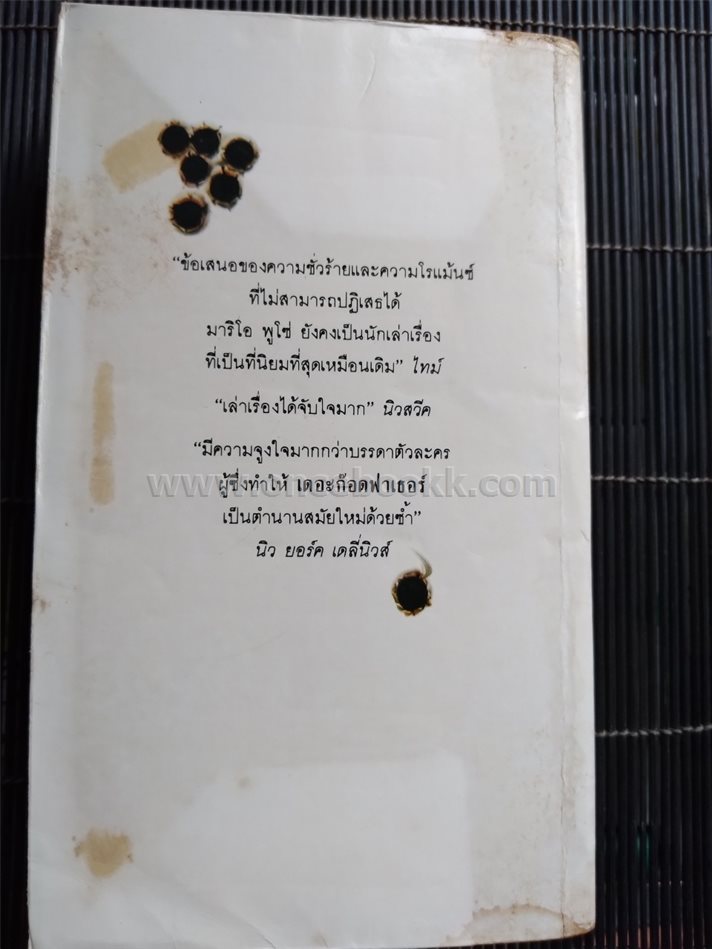 “ข้อเสนอของความชั่วร้ายและความโรแม้นซ์
ที่ไม่สามารถปฏิเสธได้
มาริโอ พูโซ่ ยังคงเป็นนักเล่าเรื่อง
ที่เป็นที่นิยมที่สุดเหมือนเดิม” ไทม์
“เล่าเรื่องได้จับใจมาก” นิวสวีค
“มีความจูงใจมากกว่าบรรดาตัวละคร
ผู้ซึ่งทำให้ เดอะก๊อดฟาเธอร์
เป็นตำนานสมัยใหม่ด้วยซ้ำ”
นิว ยอร์ค เดลี่นิวส์